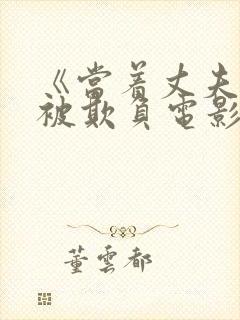 《当着丈夫
被欺负电影
董云都